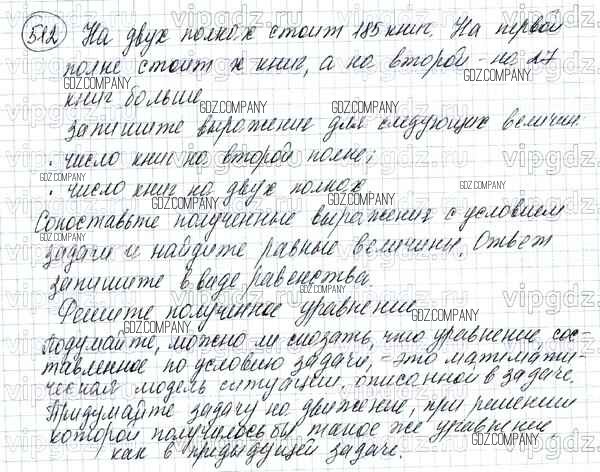 512 На двух полках стоит 185 книг. На первой
полке стоит x книг, а на второй - на 27
книг больше
Запишите выражение для следующих величин.
· число книг на второй полке;
· число книг на двух полках
Сопоставьте полученные выражения с условием
задачи и найдите равные величины. Ответ
запишите в виде равенства.
Решите полученное уравнение
Подумайте, можно ли сказать, что уравнение, сос-
тавленное по условию задачи, - это математи-
ческая модель ситуации, описанной в задаче.
Придумайте задачу на движение, при решении
которой получилось бы такое же уравнение
как в предыдущей задаче.
GDZ.COMPANY
vipgdz.ru